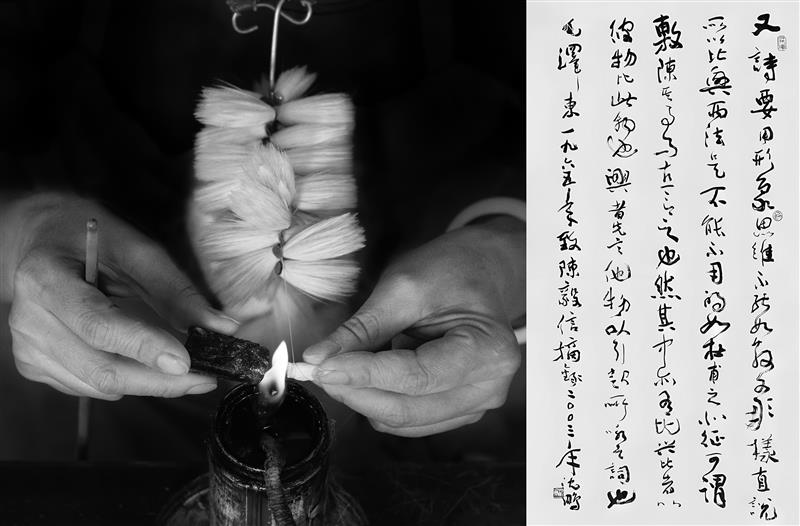 又詩要用形象思維不能如散文那樣直說
所以比興兩法是不能不用的如杜甫之北征可謂
敷陳其事而直言之也然其中亦有比兴比者以
彼物比此物也興者先言他物以引起所咏之詞也
毛澤東一九六五年致陳毅信摘錄二〇〇三年沈鵬